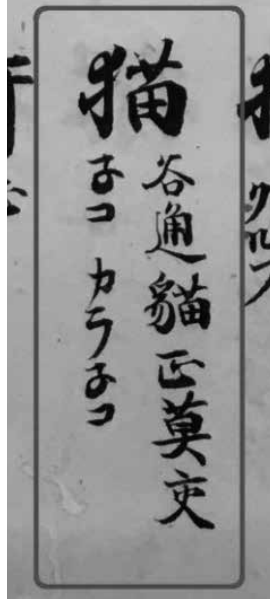 猫
谷通貓正莫交
子コ カラ子コ